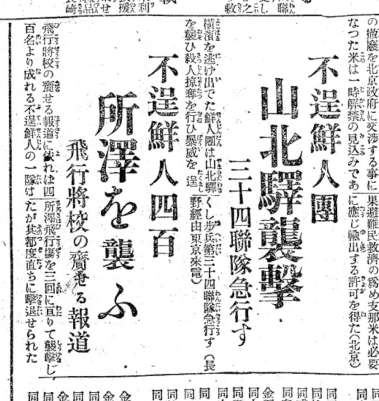 の撤廢を北京政府に交渉する事に
なつた米は一時解禁の見込みであ
果避難民救濟の爲め支那米は必要
に應じ輸出する許可を得た(北京)
不逞鮮人團
山北驛襲擊
三十四聯隊急行す
橫濱を逃げ出でた鮮人團は山北驛
を襲ひ殺人掠奪を行ひ暴威を逞
くし步兵第三十四聯隊急行す(長
野經由東京來電)
不逞鮮人四百
所澤を襲ふ
飛行將校の齎せる報道
飛行將校の齎せる報道に依れば四
百名より成れる不逞鮮人の一隊は
所澤飛行場を三回に亘りて襲擊し
たが其都度直ちに擊退せられた